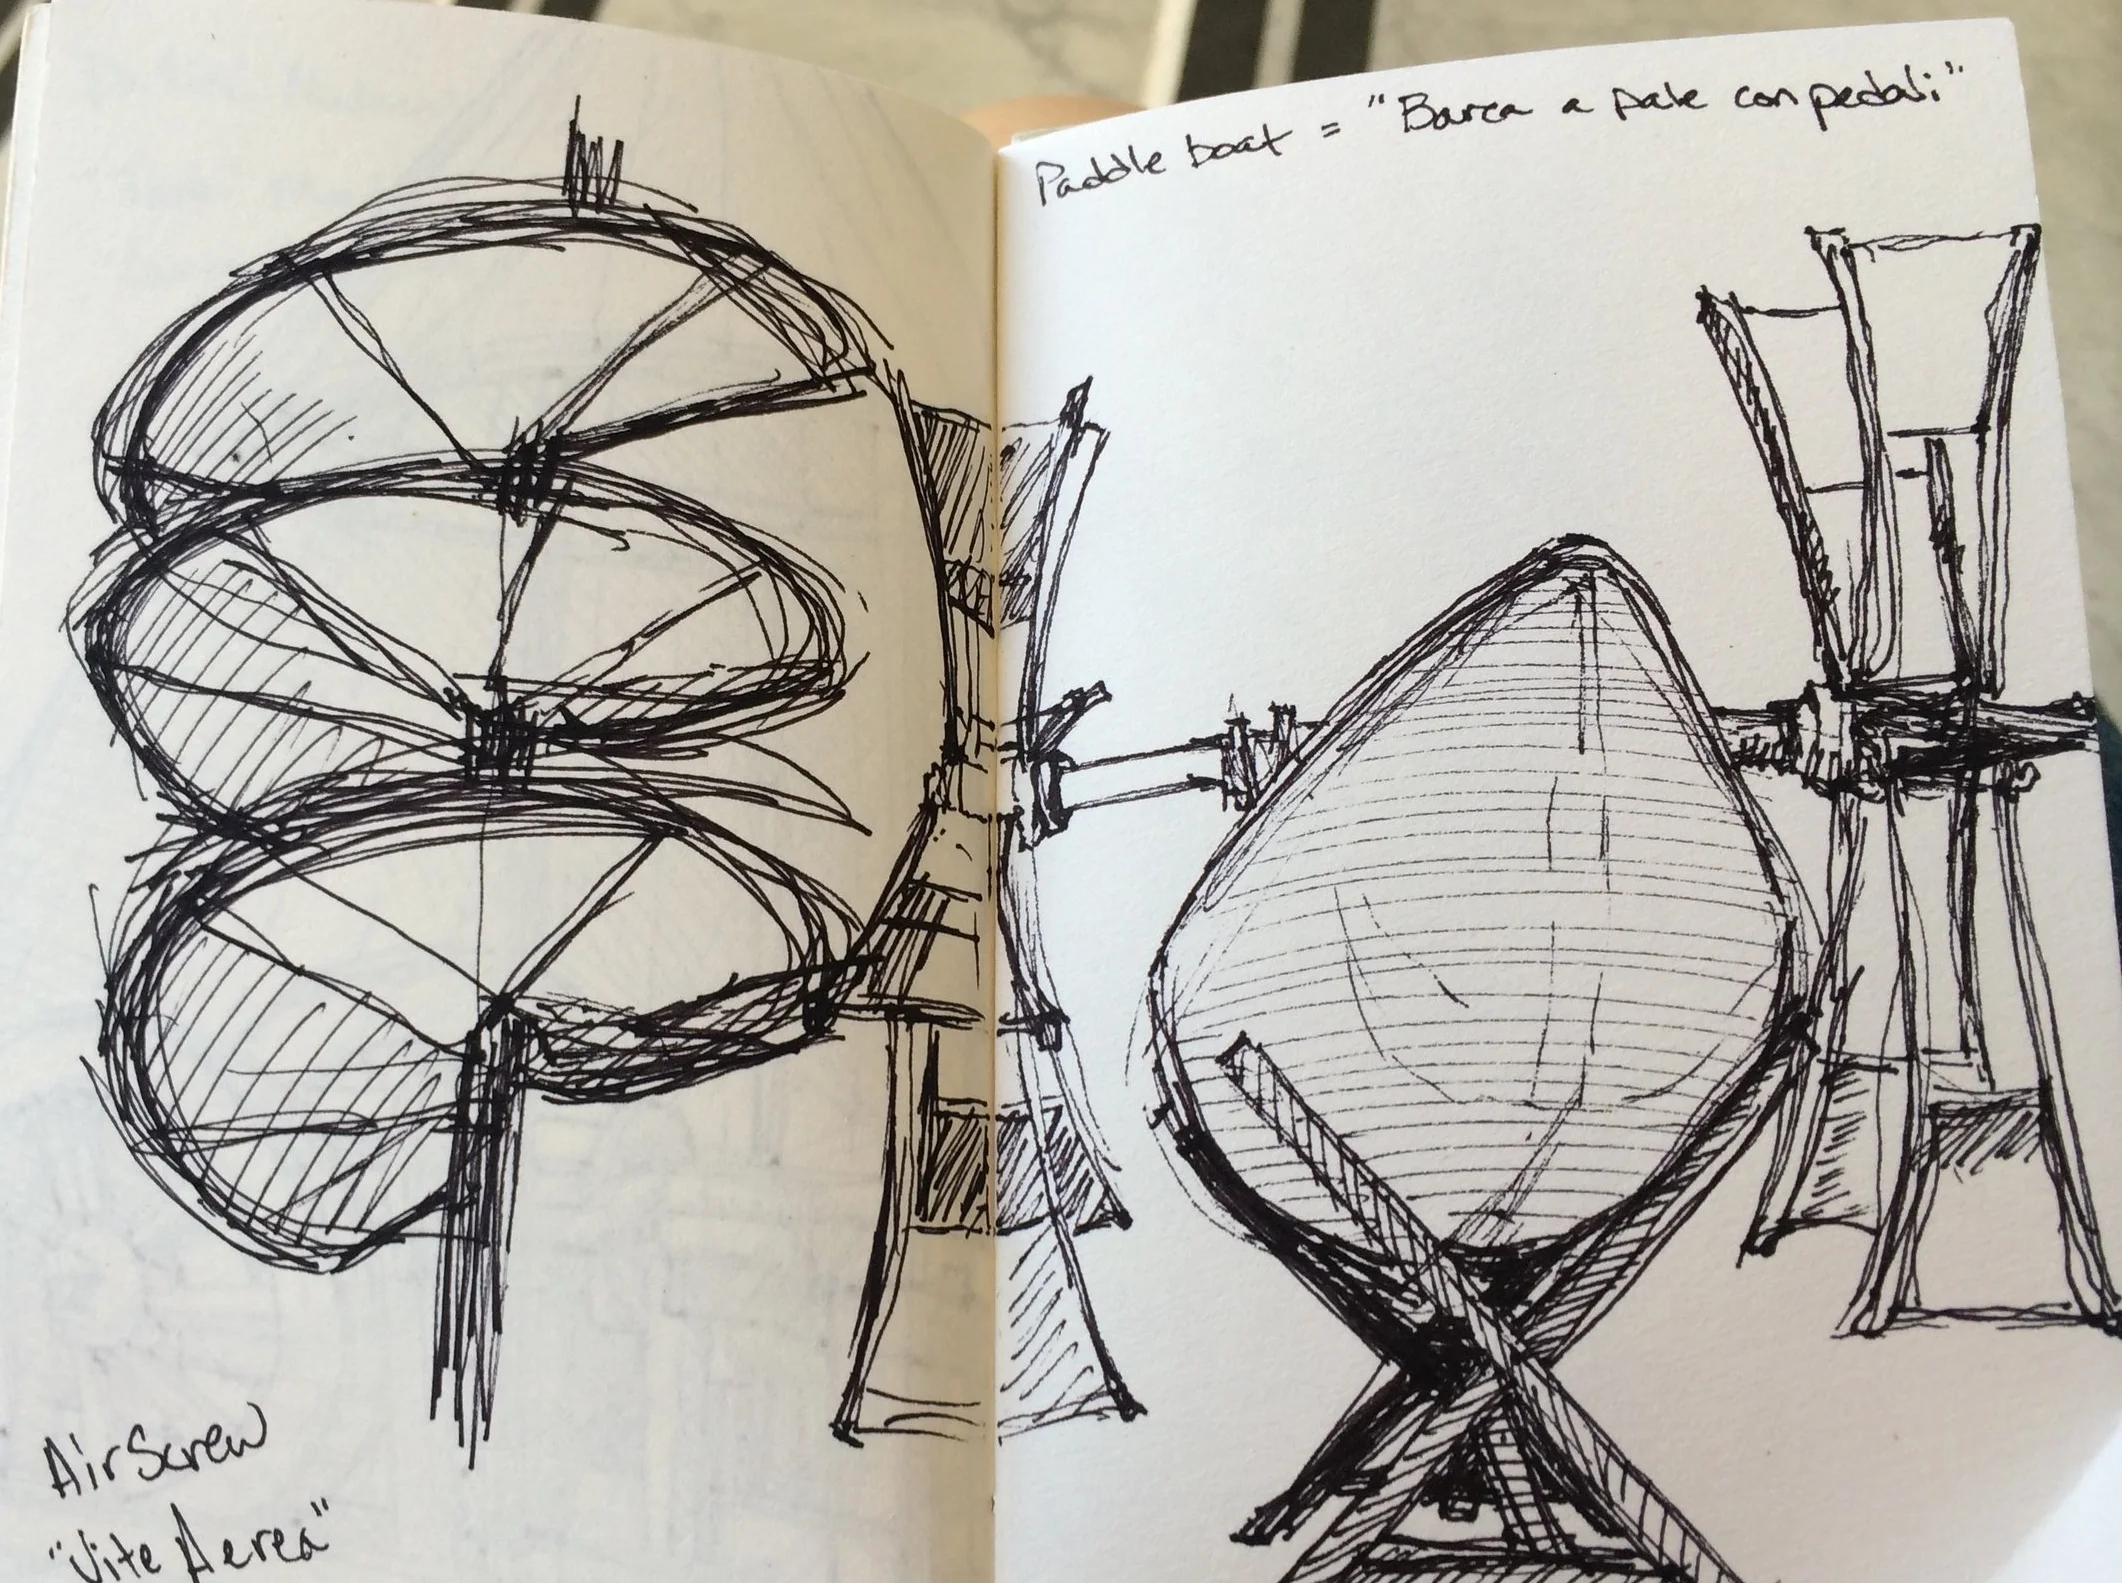 Air Screw
"Vite Aerea"
Paddle boat = "Barca a pale con pedali"